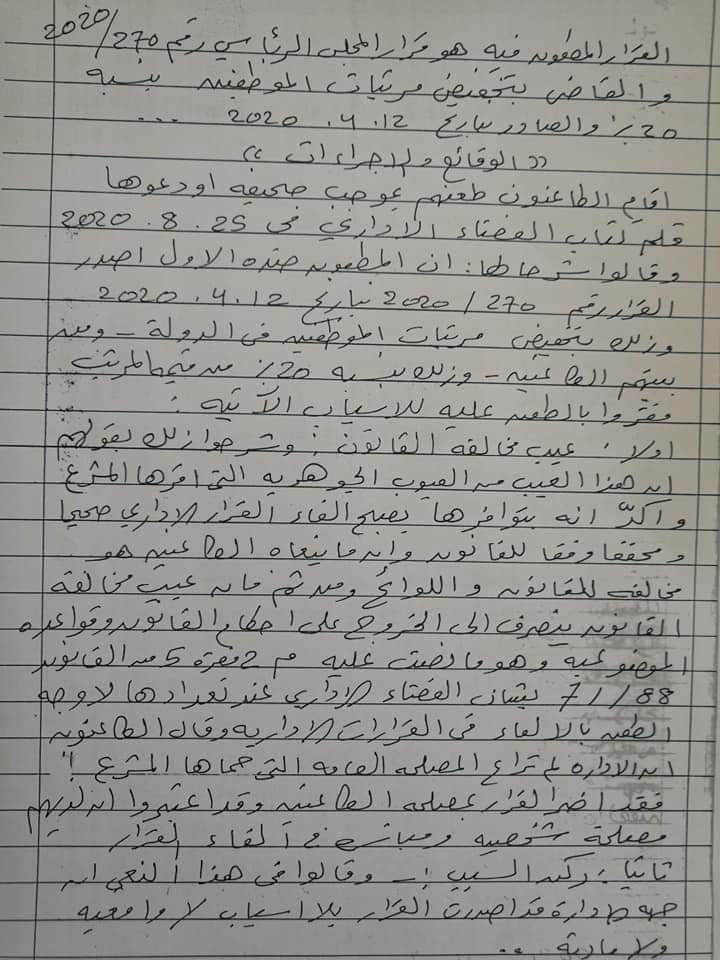 القرار المطعون فيه هو قرار المجلس الرئاسي رقم 270/2020
والقاضي بتخفيض مرتبات الموظفين بنسبة
20% والصادر بتاريخ 12.4.2020 ...
(( الوقائع والاجراءات ))
اقام الطاعنون طعنهم بموجب صحيفه اودعوها
قلم كتاب القضاء الاداري في 25.8.2020
وقالوا شرحا لها: ان المطعون ضده الاول اصدر
القرار رقم 270/2020 بتاريخ 12.4.2020
وذلك بتخفيض مرتبات الموظفين في الدولة - ومن
بينهم الطاعنين - وذلك بنسبه 20% من قيمة المرتب
فقرروا بالطعن عليه للاسباب الآتيه:
اولا: عيب مخالفة القانون: وشرحوا ذلك بقولهم
ان هذا العيب من العيوب الجوهريه التي اقرها المشرع
واكدّ انه بتوافرها يصبح الغاء القرار الاداري صحيحا
ومحققا وفقا للقانون وان ما ينعاه الطاعنين هو
مخالفه للقانون واللوائح ومن ثم فان عيب مخالفة
القانون ينصرف الى الخروج على احكام القانون وقواعده
الموضوعيه وهو ما نصت عليه م 2 فقرة 5 من القانون
88//71 بشأن القضاء الاداري عند تعدادها لاوجه
الطعن بالالغاء في القرارات الاداريه وقال الطاعنون
ان الاداره لم تراع المصلحه العامه التي حماها المشرع!
فقد اضر القرار بمصلحه الطاعنين وقد اعتبروا ان لديهم
مصلحة شخصيه ومباشره في الغاء القرار
ثانيا: ركن السبب: - وقالوا في هذا النعي ان
جهه الادارة قد اصدرت القرار بلا اسباب لا واقعيه
ولا مادية ..